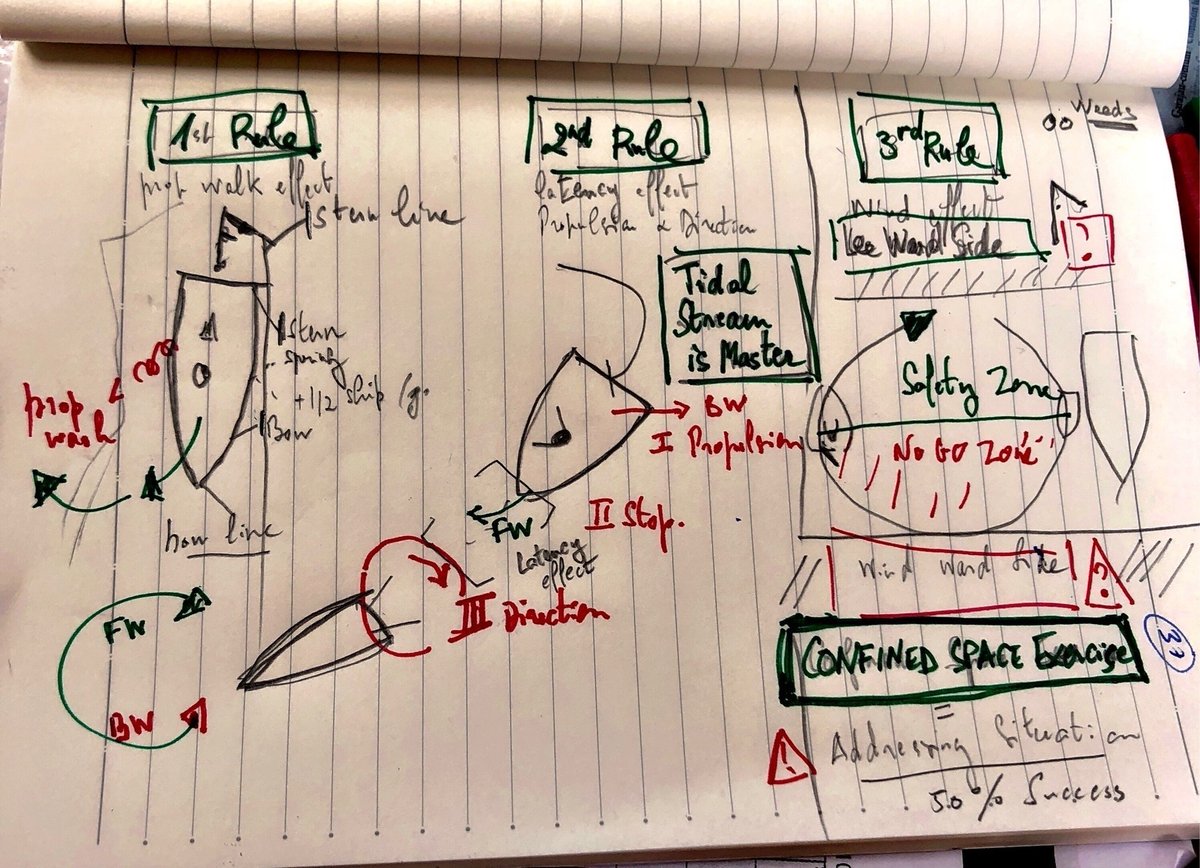 1st Rule
prop walk effect
1 stern line
1 stern
spring
+ 1/2 ship
1 Bow
prop
wash
bow line
FW
BW
2nd Rule
Latency effect
Propulsion & Direction
Tidal
Stream
is Master
BW
I Propulsion
II Stop.
FW
Latency
effect
III Direction
Weeds
3rd Rule
Wind effect
Lee Ward Side
?
Safety Zone
No GO Zone
Wind Ward Side
CONFINED SPACE Exercise
=
Addressing Situation
50% Success
37